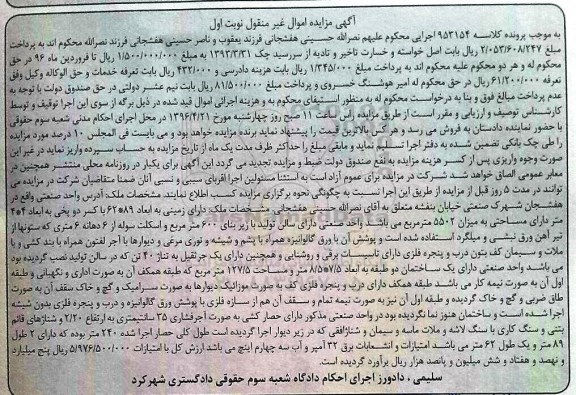 آگهی مزایده اموال غیر منقول نوبت اول
به موجب پرونده کلاسه ۹۵۳۱۵۴ اجرایی محکوم علیهم نصرالله حسینی هفشجانی فرزند یعقوب و ناصر حسینی هفشجانی فرزند نصرالله محکوم اند به پرداخت
مبلغ ۲/۰۵۳/۶۰۸/۲۴۷ ریال بابت اصل خواسته و خسارت تاخیر و تادیه از سررسید چک ۱۳۹۳/۳/۳۱ به مبلغ ۱/۵۰۰/۰۰۰/۰۰۰ ریال تا فروردین ماه ۹۶ در حق
محکوم له و هر دو محکوم علیه محکوم اند به پرداخت مبلغ ۱/۳۴۵/۰۰۰ ریال بابت هزینه دادرسی و ۴۳۲/۰۰۰ ریال بابت تعرفه خدمات و حق الوکاله وکیل وفق
تعرفه ۶۱/۲۰۰/۰۰۰ ریال در حق محکوم له امیر هوشنگ خسروی و مبلغ ۸۱/۵۰۰/۰۰۰ ریال بابت نیم عشر دولتی در حق صندوق دولت با توجه به
عدم پرداخت مبالغ فوق و بنا به درخواست محکوم له و به منظور استیفای محکوم به و هزینه اجرائی اموال قید شده در ذیل برگه از سوی این اجرا توقیف و توسط
کارشناس توصیف و ارزیابی و مقرر است از طریق مزایده راس ساعت ۱۱ صبح روز چهارشنبه مورخ ۱۳۹۶/۴/۲۱ در محل اجرای احکام مدنی شعبه سوم حقوقی
با حضور نماینده دادستان به فروش می رسد و هر کس بالاترین قیمت را پیشنهاد نماید برنده مزایده خواهد بود و می بایست فی المجلس ۱۰ درصد مورد مزایده
را طی چک بانکی تضمین شده به دفتر اجرا تسلیم نماید و مابقی مبلغ را حداکثر ظرف مدت یک ماه از تاریخ مزایده به حساب سپرده واریز نماید در غیر این
صورت وجوه واریزی پس از کسر هزینه مزایده به نفع صندوق دولت ضبط و مزایده تجدید می گردد این آگهی برای یکبار در روزنامه محلی منتشر همچنین در
معابر عمومی الصاق خواهد شد شرکت در مزایده برای عموم آزاد است به استثنا مسئولین اجرا اقربای سببی و نسبی آنان ضمنا متقاضیان شرکت در مزایده می
توانند در مدت ۵ روز قبل از مزایده از طریق این اجرا نسبت به چگونگی نحوه برگزاری مزایده کسب اطلاع نمایند. مشخصات ملک: آدرس واحد صنعتی واقع در
هفشجان شهرک صنعتی خیابان بنفشه متعلق به آقای نصرالله حسینی هفشجانی مشخصات ملک: دارای زمینی به ابعاد ۸۹*۶۲ با کسر دو پخی به ابعاد ۴*۴
متر دارای مساحتی به میزان ۵۵۰۲ مترمربع می باشد. واحد صنعتی دارای سالن تولید با زیر بنای ۶۰۰ متر مربع و اسکلت سوله از ۶ دهانه ۶ متری که ستونها از
تیر آهن ورق نبشی و میلگرد استفاده شده است و پوشش آن با ورق گالوانیزه همراه با پشم و شیشه و توری مرغی و دیوارها با آجر لفتون همراه با بند کشی و با
ملات و سیمان کف بتون درب و پنجره فلزی دارای تاسیسات برقی و روشنایی و همچنین دارای یک جرثقیل به تناژ ۴۰ تن که در سالن تولید نصب گردیده بود
می باشد واحد صنعتی دارای یک ساختمان دو طبقه به ابعاد ۷/۵*۸/۵ متر و مساحت ۱۲۷/۵ متر مربع که طبقه همکف آن به صورت اداری و نگهبانی و طبقه
اول آن به صورت نیمه کار می باشد طبقه همکف دارای درب و پنجره فلزی کف به صورت موزائیک دیوارها به صورت سرامیک و گچ و خاک سقف آن به صورت
طاق ضربی و گچ و خاک گردیده و طبقه اول آن نیز به صورت نیمه تمام و سقف آن هم از سازه فلزی با پوشش ورق گالوانیزه و درب و پنجره فلزی بدون شیشه
اجرا شده است و ساختمان هنوز نما نگردیده بود در واحد صنعتی مذکور دارای حصار کشی به صورت آجرفشاری ۳۵ سانتیمتری به ارتفاع ۲/۲۰ و شناژهای قائم
بتنی و سنگ کاری با سنگ لاشه و ملات ماسه و سیمان و شناژافقی که در زیر دیوار اجرا گردیده است طول کلی حصار اجرا شده ۲۴۰ متر بوده که دارای ۲ طول
۸۹ متر و یک طول ۶۲ متر می باشد امتیازات و انشعابات برق ۳۲ آمپر و آب سه چهارم اینچ می باشد ارزش کل با امتیازات ۵/۹۷۶/۵۰۰/۰۰۰ ریال پنج میلیارد
و نهصد و هفتاد و شش میلیون و پانصد هزار ریال برآورد گردیده است.
سلیمی ، دادورز اجرای احکام دادگاه شعبه سوم حقوقی دادگستری شهرکرد